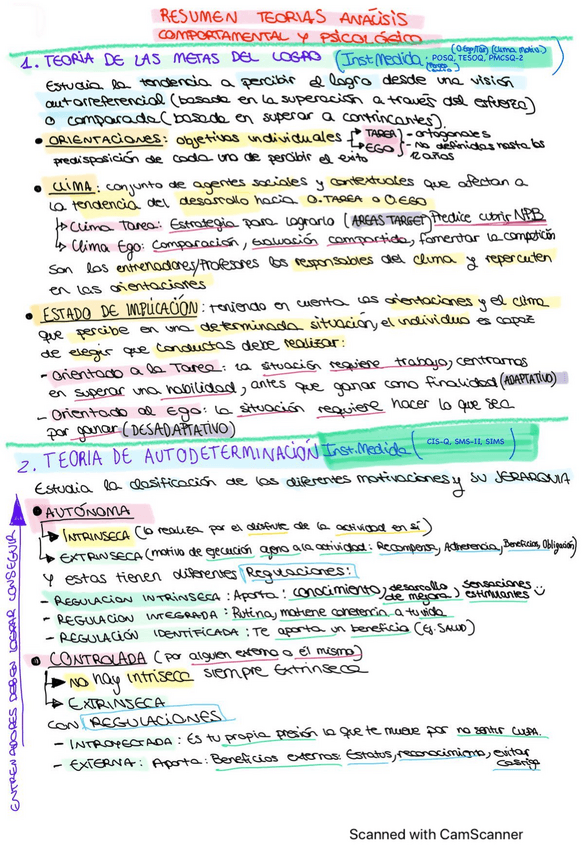 RESUMEN TEORIAS ANALISIS
COMPORTAMENTAL Y PSICOLÓGICO
1. TEORÍA DE LAS METAS DEL LOGRO (Inst Medida: POSQ, TESOQ, PMCSQ-2
Estudia la tendencia a percibir el logro desde una visión
autorreferencial (basada en la superación a través del esfuerzo)
o comparada (basada en superar a contrincantes).
• ORIENTACIONES: objetivos individuales TAREA - ortogonales
predisposición de cada uno de percibir el exito EGO - No definidas hasta los 12 años
• CLIMA: conjunto de agentes sociales y contextuales que afectan a
la tendencia del desarrollo hacia O.TAREA o O.EGO
Clima Tarea: Estrategia para lograrlo (AREAS TARGET) Predice cubrir NPB
Clima Ego: comparación, evaluación compartida, fomentar la competición
Son los entrenadores/Profesores los responsables del clima y repercuten
en las orientaciones
• ESTADO DE IMPLICACIÓN: teniendo en cuenta las orientaciones y el clima
que percibe en una determinada situación, el individuo es capaz
de elegir que conductas debe realizar:
- Orientado a la Tarea: la situación requiere trabajo, centrarnos
en superar una habilidad, antes que ganar como finalidad (ADAPTATIVO)
- Orientado al Ego: la situación requiere hacer lo que sea
por ganar (DESADAPTATIVO)
2. TEORIA DE AUTODETERMINACIÓN Inst. Medida (CIS-Q, SMS-II, SIMS)
Estudia la clasificación de las diferentes motivaciones y su JERARQUIA
• AUTÓNOMA
INTRINSECA (lo realiza por el disfrute de la actividad en sí)
EXTRINSECA (motivo de ejecución ajeno a la actividad: Recompensa, Adherencia, Beneficios, Obligación)
Y estas tienen diferentes Regulaciones:
- REGULACION INTRINSECA: Aporta: conocimiento, desarrollo de mejora, sensaciones estimulantes
- REGULACION INTEGRADA: Rutina, mantiene coherencia a tu vida
- REGULACIÓN IDENTIFICADA: Te aporta un beneficio (Ej. SALUD)
• CONTROLADA (por alguien externo o él mismo)
NO hay intriseca siempre Extrinseca
EXTRINSECA
CON REGULACIONES
- INTROYECTADA: Es tu propia presión lo que te mueve por no sentir CULPA.
- EXTERNA: Aporta: Beneficios externos: Estatus, reconocimiento, evitar castigo
ENTRENADORES DEBEN LOGRAR CONSEGUIR
Scanned with CamScanner